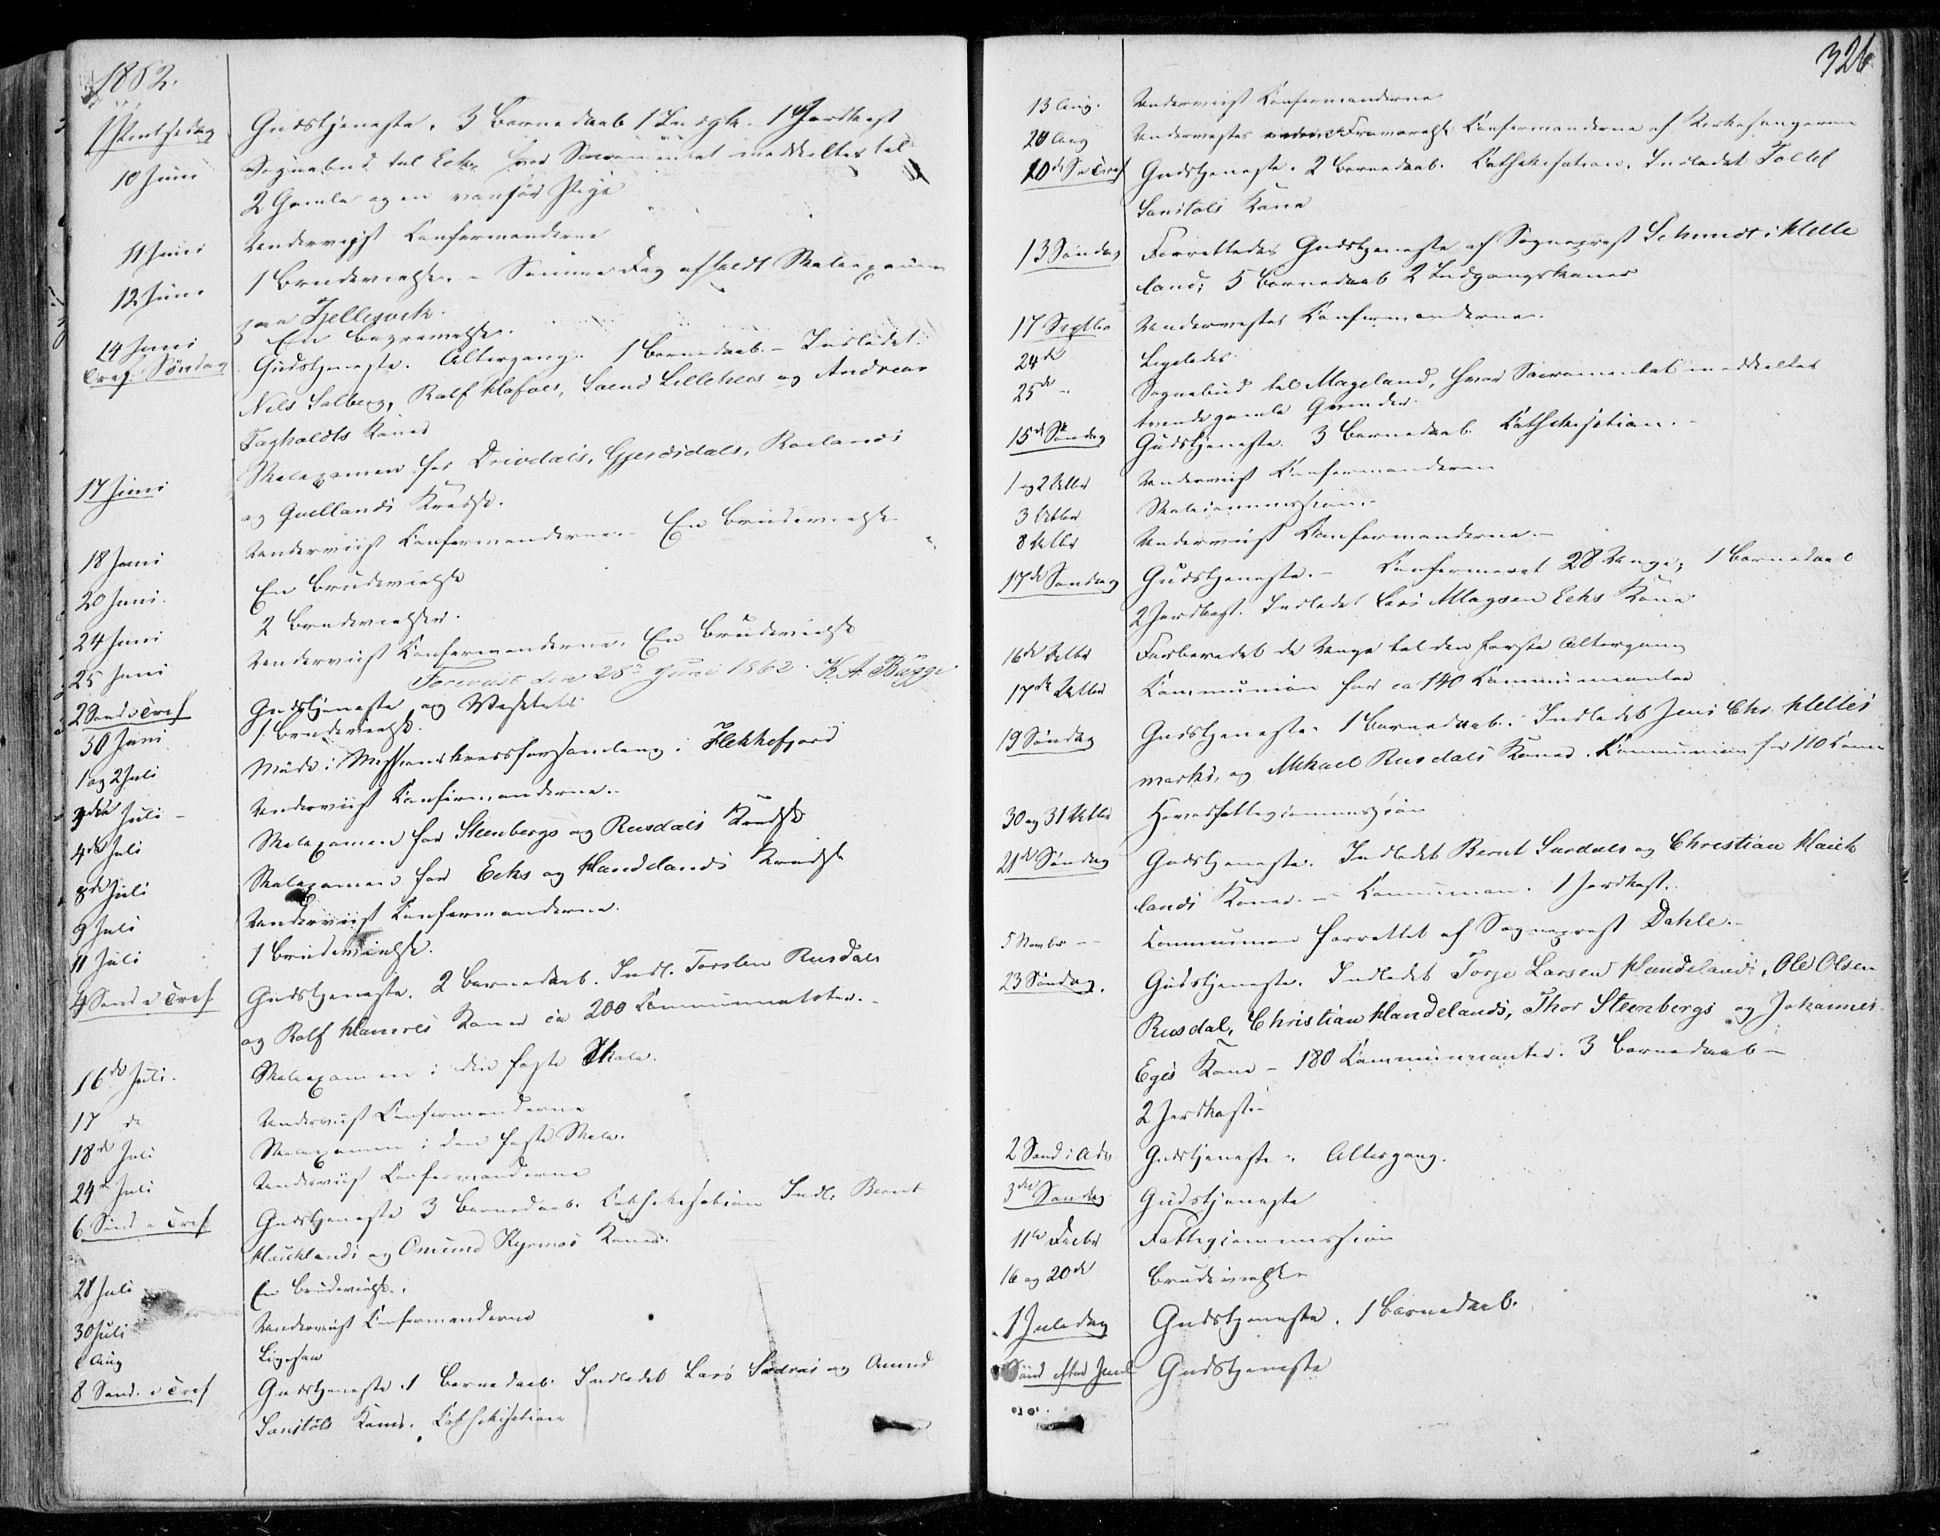 1862.
1 Pintsedag Gudstjeneste. 3 Barnedaab 1 Indgk. 1 Jordkast
10 Juni Sognebud til Eek, hvor Sacramentet meddeltes til
2 Gamle og en vanför Pige
11 Juni Underviist Confirmanderne
12 Juni 1 Brudevielse. – Samme Dag afholdt Skoleexamen
paa Fjellesvek.
14 Juni En Begravelse.
Tref. Søndag Gudstjeneste. Altergang. 1 Barnedaab. – Indledet
Nils Salberg, Rolf Hofaas, Svend Lilleheas og Andreas
Tagholdts Koner
17 Juni Skoleexamen for Drivdals, Gjersdals, Roelands
og Quellands Kreds.
18 Juni Underviist Confirmanderne. – En Brudevielse
20 Juni. En Brudevielse
24 Juni 2 Brudevielser.
25 Juni Underviist Confirmanderne. En Brudevielse
Foreviist den 28de Juni 1862. K. A. Bugge
2 Sönd e Tref Gudstjeneste og
30 Juni 1 Brudevielse.
1 og 2 Juli Möde i Missionskredsforsamling i Flekkefjord
3die Juli – Underviist Confirmanderne.
4de Juli Skoleexamen for Steenbergs og Rusdals Kreds
8de Juli Skoleexamen for Eeks og Handelands Kreds
9 Juli Underviist Confirmanderne.
11 Juli 1 Brudevielse.
4 Sönd e Tref Gudstjeneste. 2 Barnedaab. Indl. Torsten Rusdals
og Rolf Koner ca 200 Communicanter. –
16de Juli. Skoleexamen i den faste Skole.
17 de Underviist Confirmanderne
18de Juli Skoleexamen i den faste Skole.
24de Juli Underviist Confirmanderne
6 Sönd e Tref Gudstjeneste 3 Barnedaab. Cathekisation Indl. Bernt
Haucklands og Omund Kyrmos Koner.
28 Juli En Brudevielse.
30 Juli Underviist Confirmanderne
Aug Ligesaa
8 Sönd. e Tref Gudstjeneste 1 Barnedaab. Indledet Lars og Amund
Sanstöls Koner. Cathekisation
326
13 Aug. Underviist Confirmanderne
20 Aug Underviistes Confirmanderne af Kirkesangeren
10de S e Tref Gudstjeneste. 2 Barnedaab. Cathekisation. Indledet Tollef
Sanstöls Kone
13 Søndag Forrettedes Gudstjeneste af Sogneprest Schmidt i Helle
land; 5 Barnedaab 2 Indgangskoner
17 Septbr Underviistes Confirmanderne.
24de Ligeledes
25de – Sognebud til Mageland, hvor Sacramentet meddeltes
tvende gamle Qvinder.
15de Söndag Gudstjeneste. 3 Barnedaab. Cathekisation. –
1 og 2 Octbr Underviist Confirmanderne
3 Octbr Skolecommission.
8 Octbr Underviist Confirmanderne. –
17de Søndag Gudstjeneste. – Confirmeret 28 Unge; 1 Barnedaab
2 Jordkast. Indledet Lars Magsen Eeks Kone
16de Octbr Forberedet de Unge til den første Altergang
17de Octbr Communion for ca 140 Communicanter
19 Søndag Gudstjeneste. 1 Barnedaab. Indledet Jens Chr Helles
marks, og Mikael Rusdals Koner. Communion for 110 Comm
30 og 31 Octbr Herredsfattigcommission
21de Søndag Gudstjeneste. Indledet Bernt Surdals og Christian Hauck
lands Koner. – Communion. 1 Jordkast.
5 Novbr – – Communion forrettet af Sogneprest Dahle. –
23 Søndag. Gudstjeneste. Indledet Torje Larsen Handelands, Ole Olsen
Rusdal, Christian Handelands, Thor Steenbergs og Johannes
Eges Kone – 180 Communicanter. 3 Barnedaab –
2 Jordkast. –
2 Sönd i Adv. Gudstjeneste. Altergang.
3die Søndag Gudstjeneste
11te Decbr Fattigcommission
16 og 20de Brudevielse
1 Juledag Gudstjeneste. 1 Barnedaab.
Sönd efter Juul Gudstjeneste